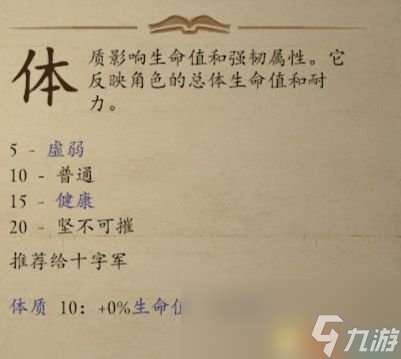 体质影响生命值和强韧属性。它
反映角色的总体生命值和耐
力。
5 - 虚弱
10 - 普通
15 - 健康
20 - 坚不可摧
推荐给十字军
体质 10：+0%生命值
九游